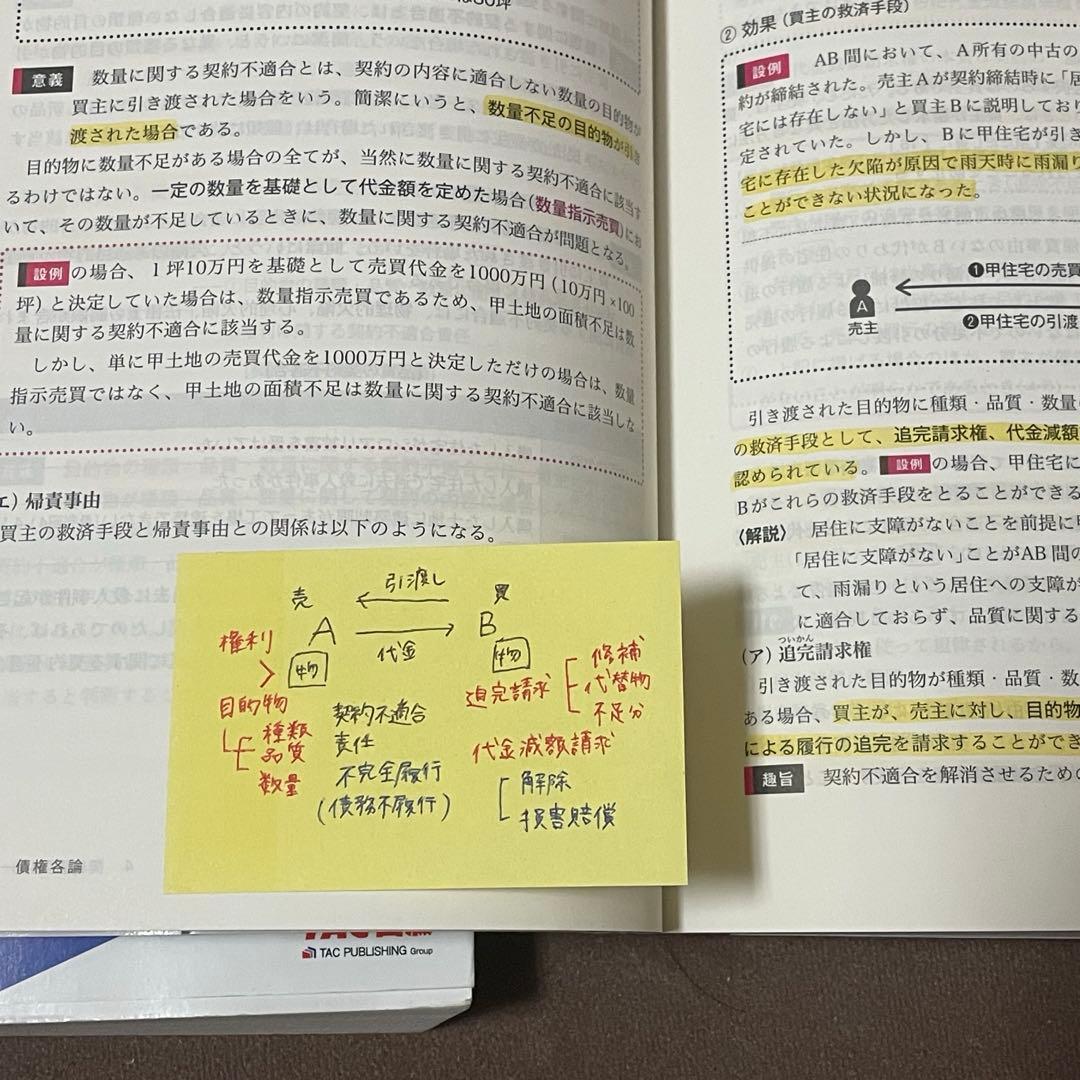 意義 数量に関する契約不適合とは、契約の内容に適合しない数量の目的物が
買主に引き渡された場合をいう。簡潔にいうと、数量不足の目的物が引き
渡された場合である。
目的物に数量不足がある場合の全てが、当然に数量に関する契約不適合に該当す
るわけではない。一定の数量を基礎として代金額を定めた場合(数量指示売買)にお
いて、その数量が不足しているときに、数量に関する契約不適合が問題となる。
設例の場合、1坪10万円を基礎として売買代金を1000万円(10万円×100
坪)と決定していた場合は、数量指示売買であるため、甲土地の面積不足は数
量に関する契約不適合に該当する。
しかし、単に甲土地の売買代金を1000万円と決定しただけの場合は、数量
指示売買ではなく、甲土地の面積不足は数量に関する契約不適合に該当しな
い。
(エ) 帰責事由
買主の救済手段と帰責事由との関係は以下のようになる。
売 引渡し 買
A 代金 B
物 物
権利
目的物
種類
品質
数量
契約不適合
責任
不完全履行
(債務不履行)
追完請求
修補
代替物
不足分
代金減額請求
解除
損害賠償
債権各論
TAC PUBLISHING Group
② 効果 (買主の救済手段)
設例 AB間において、A所有の中古の
約が締結された。売主Aが契約締結時に「居
宅には存在しない」と買主Bに説明しており
定されていた。しかし、Bに甲住宅が引き
宅に存在した欠陥が原因で雨天時に雨漏り
ことができない状況になった。
❶甲住宅の売買
A
売主
❷甲住宅の引渡
引き渡された目的物に種類・品質・数量に
の救済手段として、追完請求権、代金減額
認められている。設例の場合、甲住宅に
Bがこれらの救済手段をとることができる
〈解説〉 居住に支障がないことを前提に甲
「居住に支障がない」ことがAB間の
て、雨漏りという居住への支障が
に適合しておらず、品質に関する
ついかん
(ア) 追完請求権
引き渡された目的物が種類・品質・数
ある場合、買主が、売主に対し、目的物
による履行の追完を請求することができ
趣旨 契約不適合を解消させるための